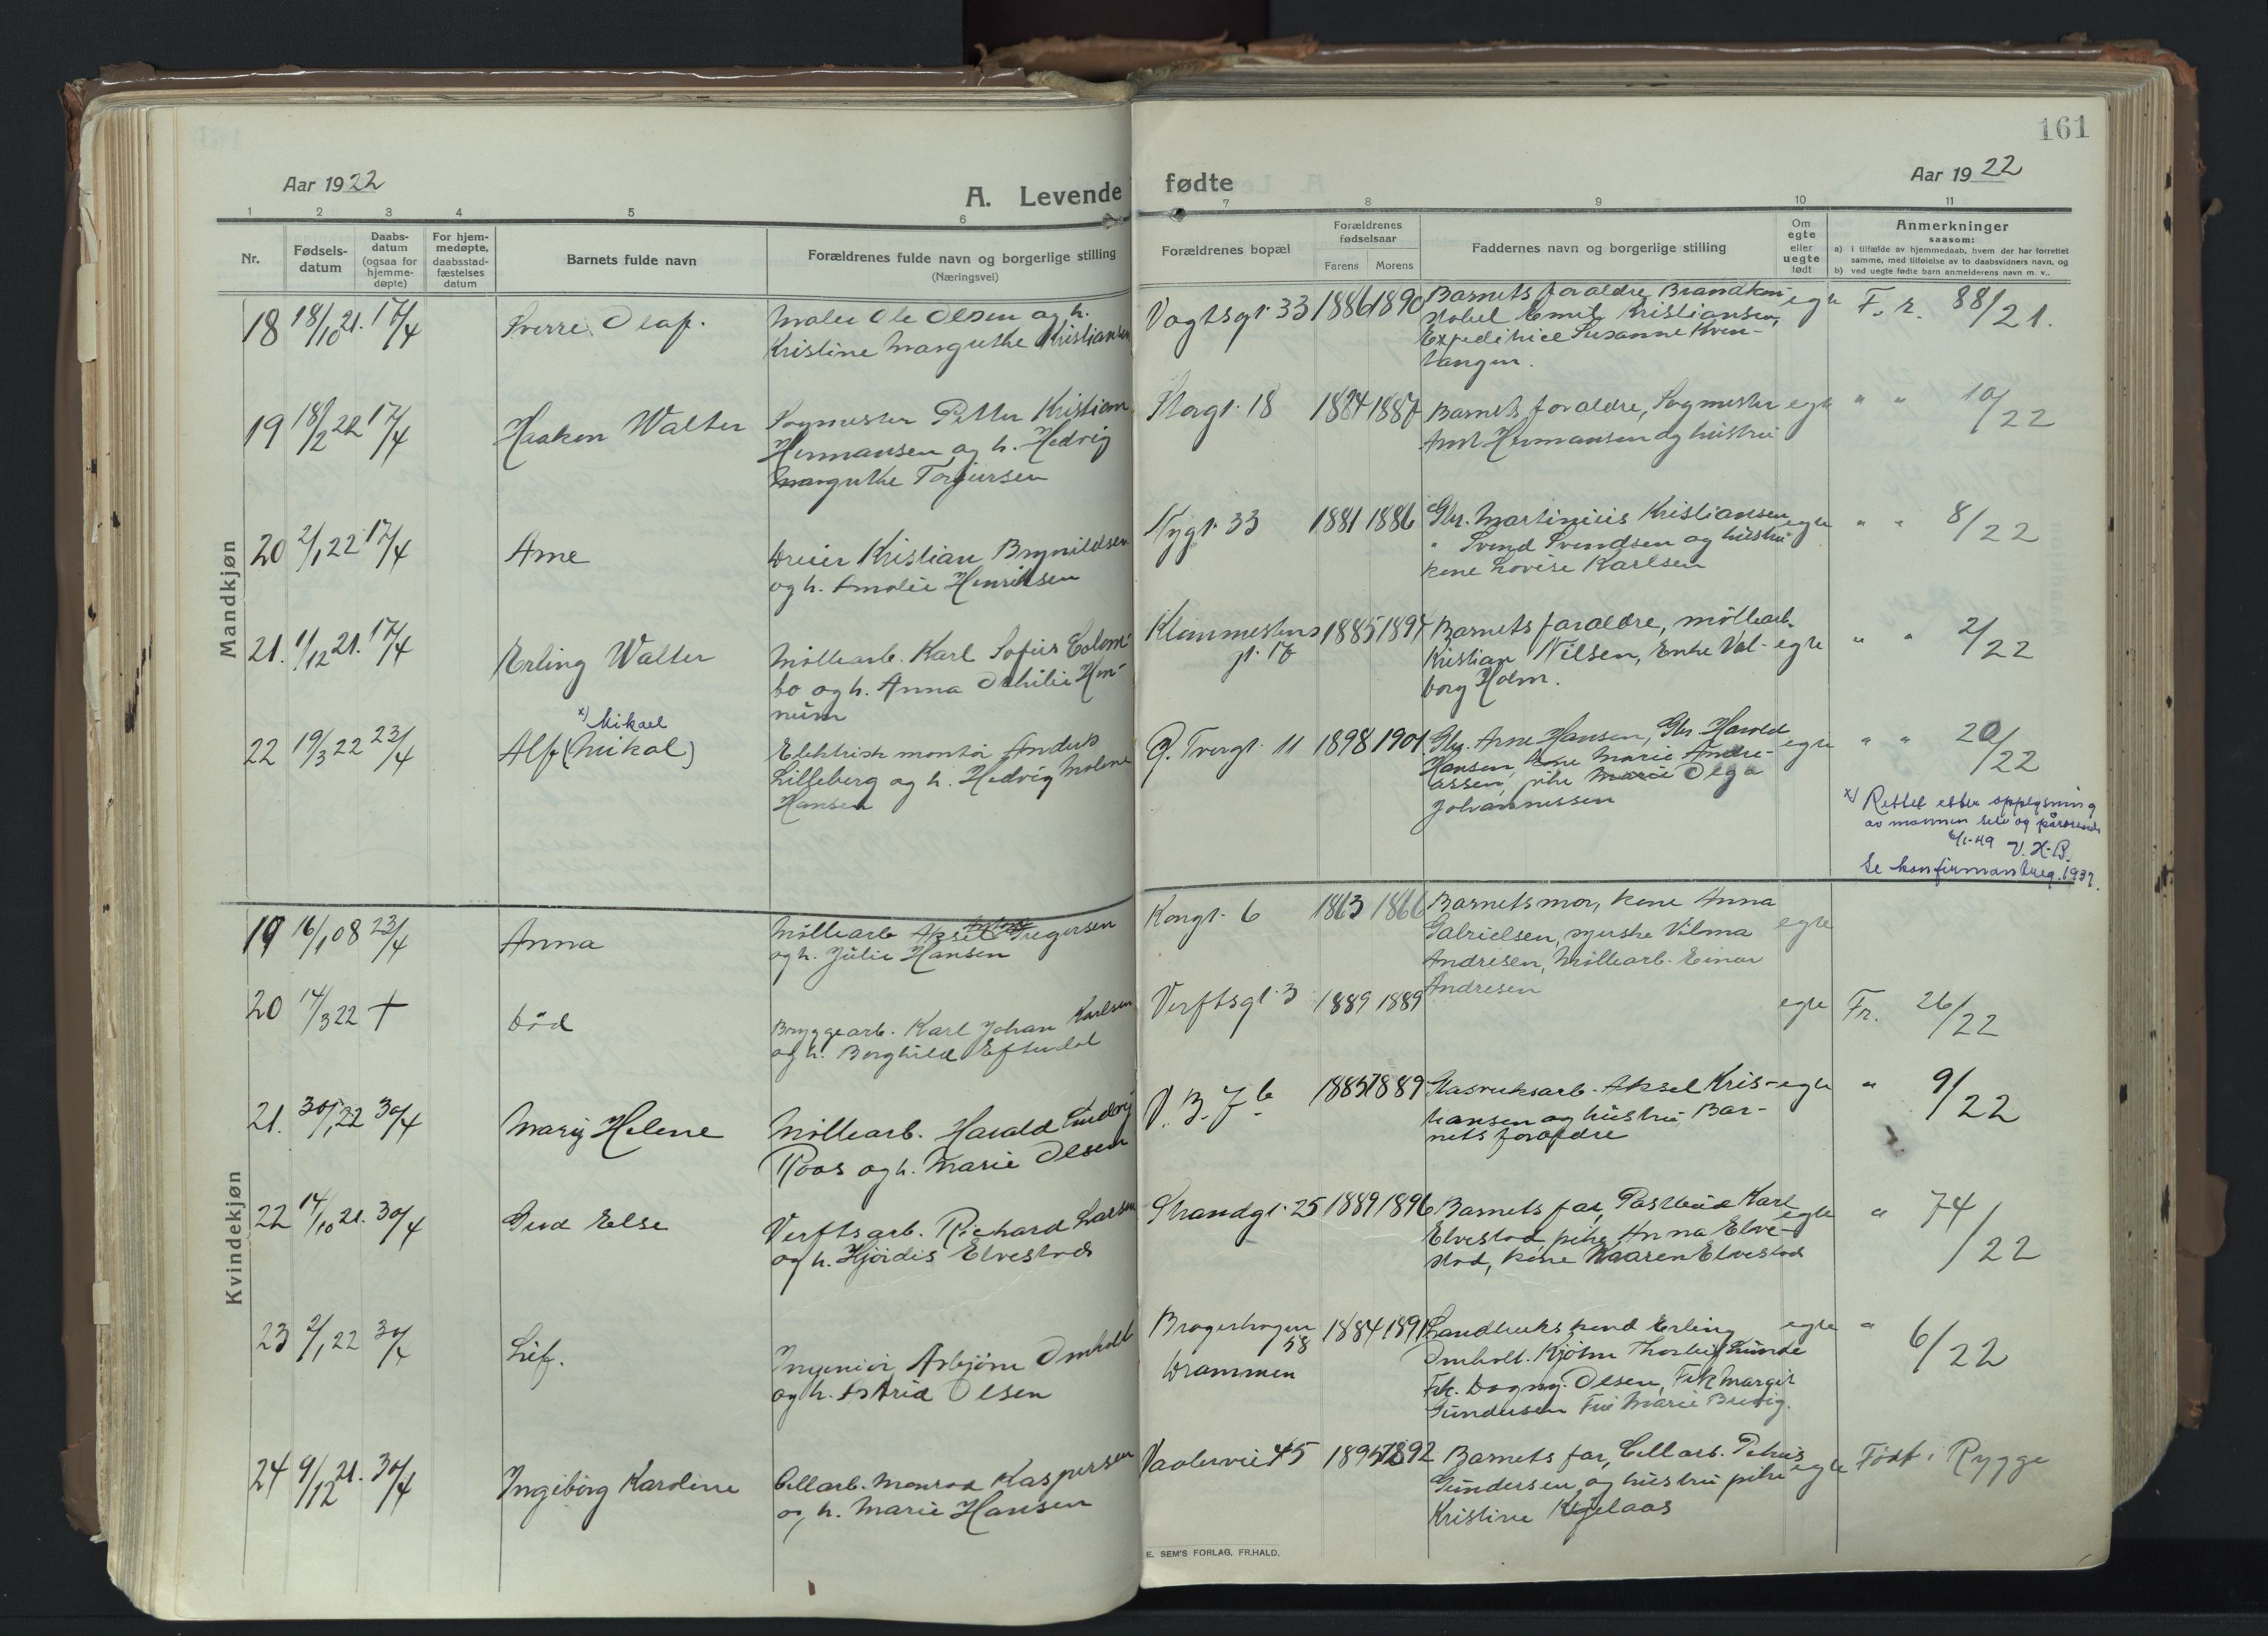 161
Aar 1922
A. Levende
fødte
Aar 1922
1 2 3 4 5 6 7 8 9 10 11
Nr.
Fødsels-
datum
Daabs-
datum
(ogsaa for
hjemme-
døpte)
For hjem-
medøpte,
daabsstad-
fæstelses
datum
Barnets fulde navn
Forældrenes fulde navn og borgerlige stilling
(Næringsvei)
Forældrenes bopæl
Forældrenes
fødselsaar
Farens Morens
Faddernes navn og borgerlige stilling
Om
egte
eller
uegte
født
Anmerkninger
saasom:
a) i tilfælde av hjemmedaab, hvem der har forrettet
samme, med tilføielse av to daabsvidners navn, og
b) ved uegte fødte barn anmelderens navn m. v..
Mandkjøn
18 18/10 21. 17/4
Sverre Olaf.
Maler Ole Olsen og h.
Kristine Margrethe Kristiansen
Vogtsgt. 33 1886 1890
Barnets foraldre, Brandkon-
stabel Emil Kristiansen,
Expeditrice Susanne Kven-
tangen.
egte
F. r. 88/21.
19 18/2 22 17/4
Haakon Walter
Sagmester Petter Kristian
Hermansen og h. Hedvig
Margrethe Torjursen
Storgt. 18 1884 1887
Barnets foraldre, Sagmester
Hermansen og hustru
egte
" " 10/22
20 2/1 22 17/4
Arne
Dreier Kristian Brynildsen
og h. Amalie Henriksen
Nygt. 33 1881 1886
Gbr. Martinius Kristiansen
" Svend Svendsen og hustru
kone Lovise Karlsen
egte
" " 8/22
21. 11/12 21. 17/4
Erling Walter
Møllearb. Karl Sofus Colom-
bo og h. Anna Othilie Hen-
num
1885 1894
Barnets foraldre, møllearb.
Kristian Nilsen, Enke Val-
borg Holm.
egte
" " 2/22
22 19/3 22 23/4
x) Mikael
Alf (Mikal)
Elektrisk montør Anders
Lilleberg og h. Hedvig Molene
Hansen
G. Tvergt. 11 1898 1901
Gbr. Arne Hansen, Gbr Harald
Hansen, kone Marie Andre-
assen, pike Marie Olga
Johannessen
egte
" " 20/22
x) Rettet etter opplysning
av mannen selv og pårørende
6/1-49 V. H. B.
Se konfirmantreg. 1937.
Kvindekjøn
19 16/1 08 23/4
Anna
Møllearb Aksel Gregersen
og h. Julie Hansen
Kongt. 6 1863 1866
Barnets mor, kone Anna
Gabrielsen, syerske Vilma
Andresen, Møllearb. Einar
Andresen
egte
20 14/3 22 +
død
Bryggearb. Karl Johan Karlsen
og h. Borghild Eftedal
Verftsgt. 3 1889 1889
egte
Fr. 26/22
21. 30/1 22 30/4
Mary Helene
Møllearb. Harald Ludvig
Roos og h. Marie Olsen
V. B. 7 b 1885 1889
Glasverksarb. Aksel Kris-
tiansen og hustru Bar-
nets foraldre
egte
" 9/22
22 14/10 21. 30/4
Gud Else
Verftsarb. Richard Larsen
og h. Hjørdis Elvestad
Strandgt. 25 1889 1896
Barnets far, Postbud Karl
Elvestad pike Anna Elve-
stad, kone Maaren Elvestad
egte
" 74/22
23 2/1 22 30/4
Liv.
Ingeniør Asbjørn Omholt
og h. Astrid Olsen
Bragerhagen
58
Drammen
1884 1891
Landbruks kand Erling
Omholt. Kjøbm Thorleif Lunde
Frk. Dagny Olsen, Frk Margit
Gundersen Fru Marie Brevig.
egte
" 6/22
24 9/12 21. 30/4
Ingebørg Karoline
Cellarb. Monrad Kaspersen
og h. Marie Hansen
Vaalervei 45 1895 1892
Barnets far, Cellarb. Petrus
Gundersen, og hustru pike
Kristine
egte
Født i Rygge
E. SEM'S FORLAG, FR.HALD.